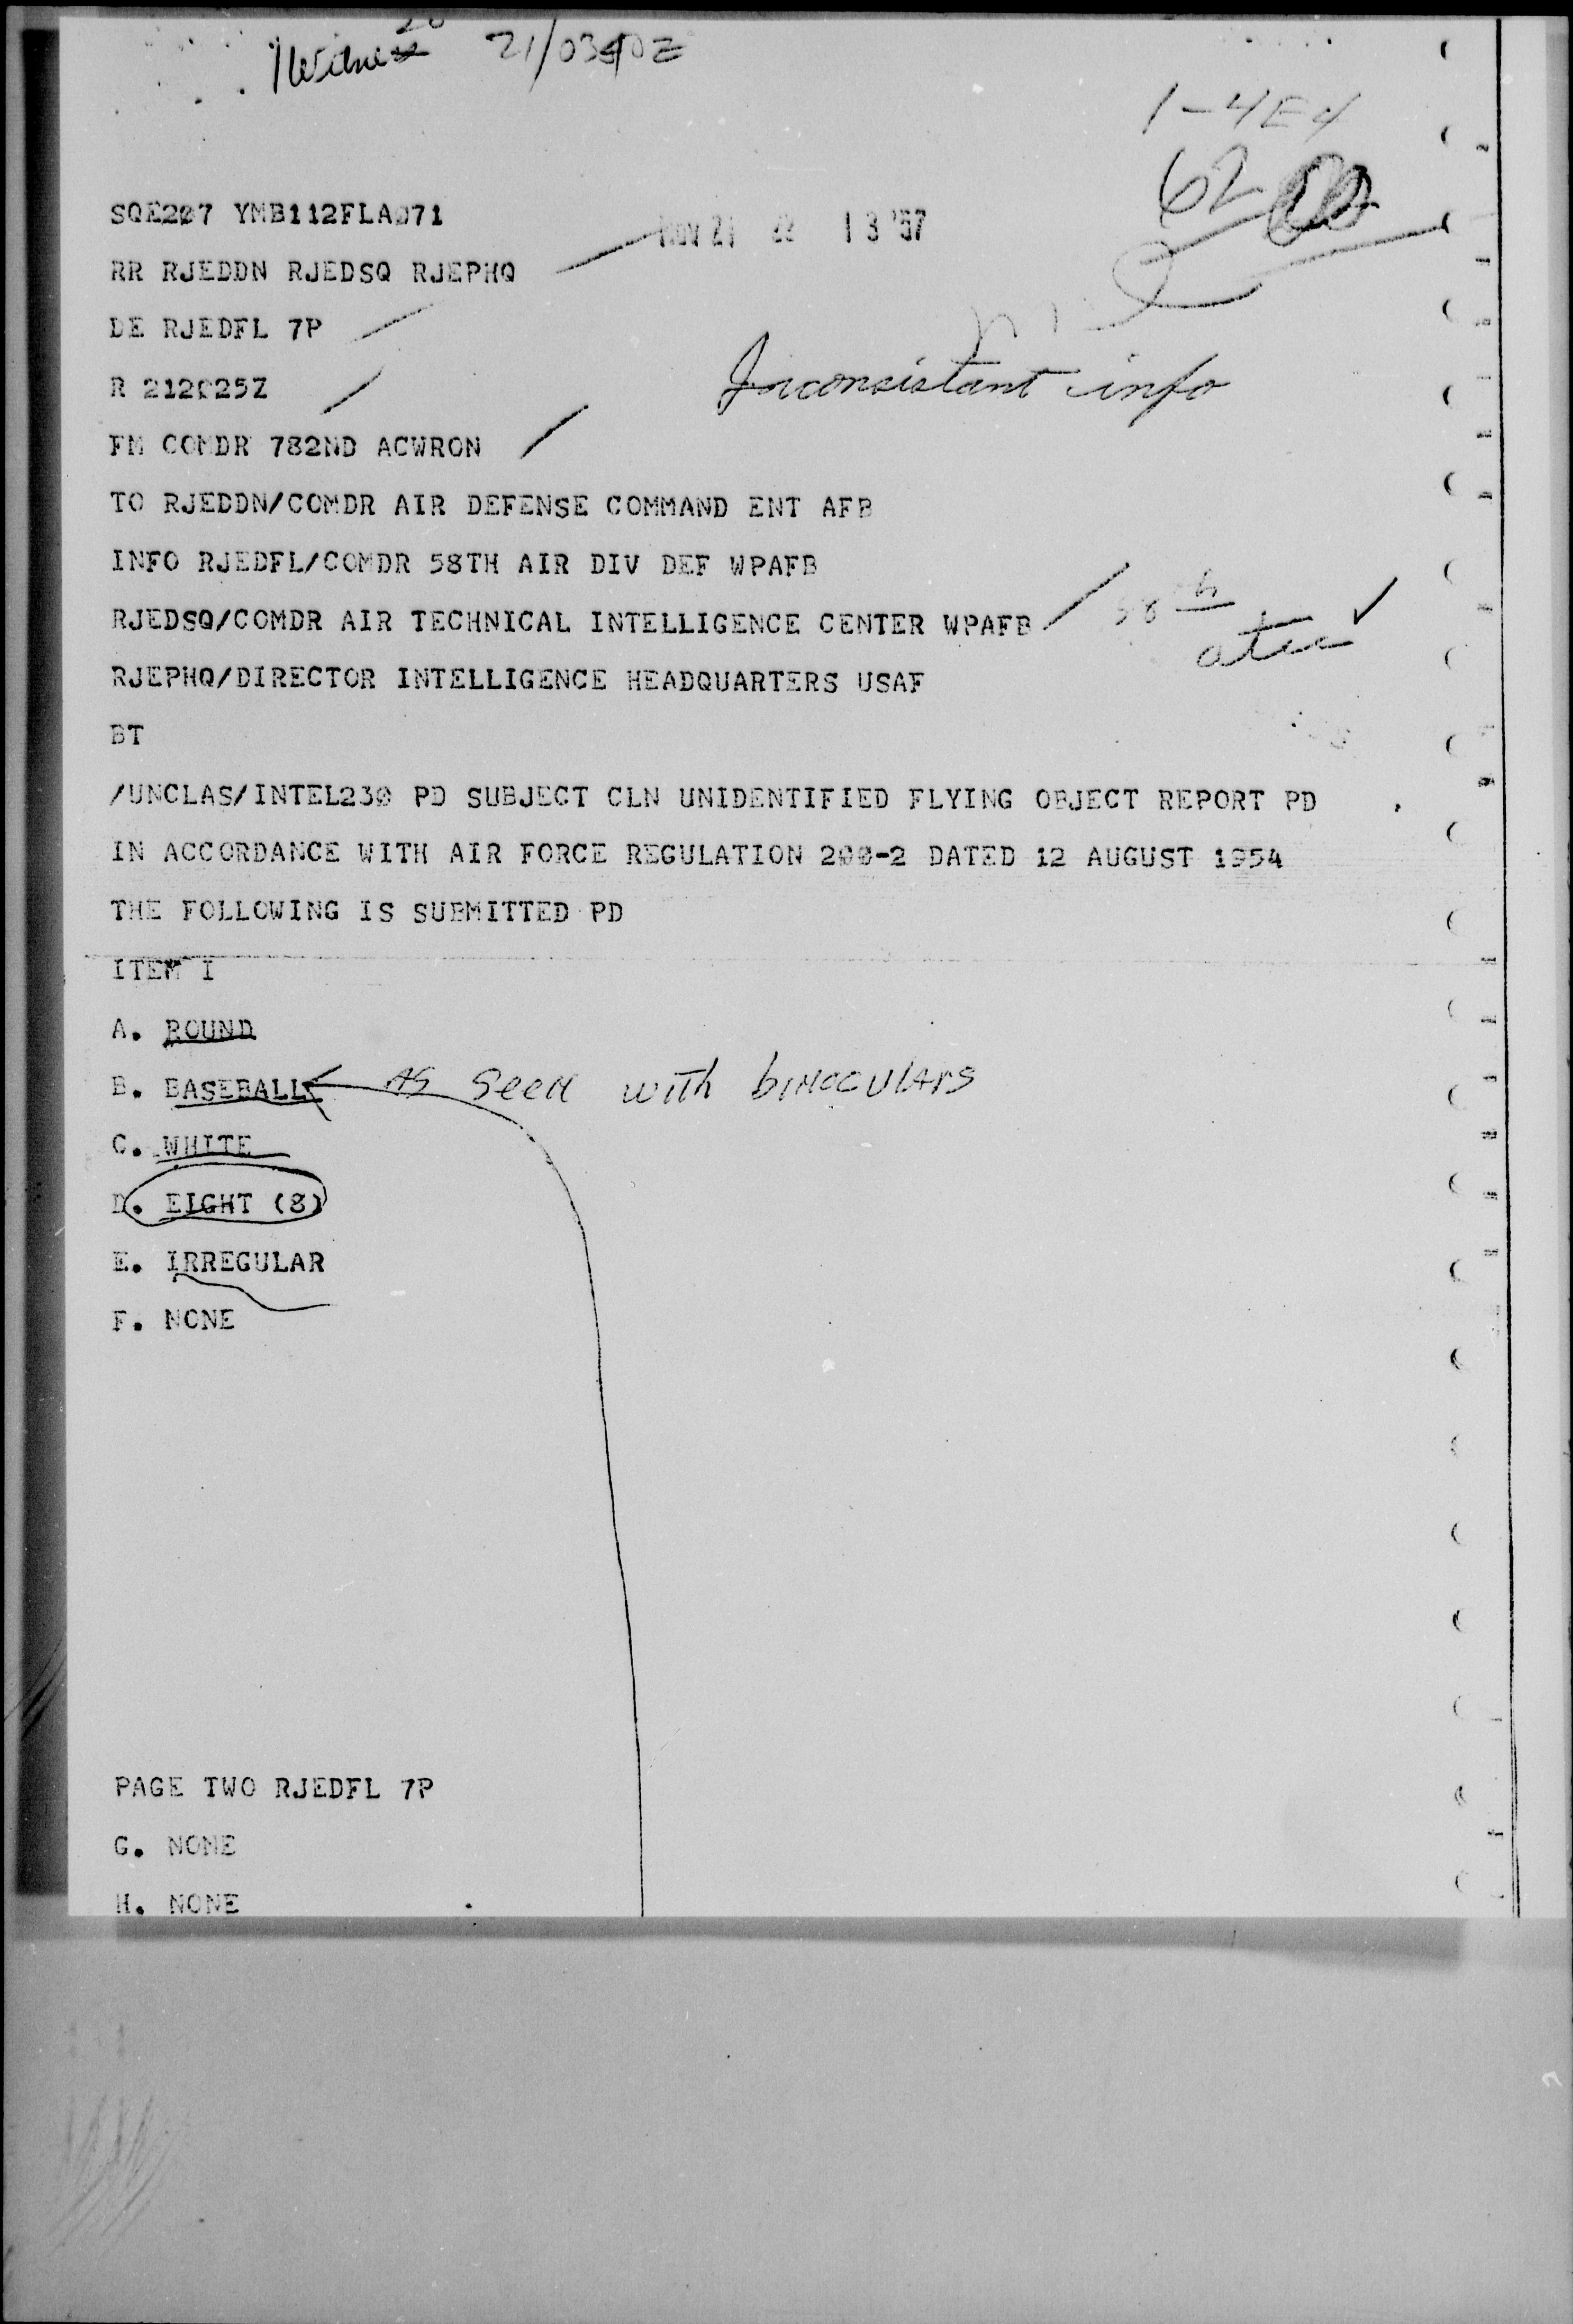 1 Witness 21/0340Z
1-4E4
62
SQE207 YMB112FLA071
NOV 21 22 13 '57
RR RJEDDN RJEDSQ RJEPHQ
DE RJEDFL 7P
R 212025Z
Inconsistant info
FM COMDR 782ND ACWRON
TO RJEDDN/COMDR AIR DEFENSE COMMAND ENT AFB
INFO RJEDFL/COMDR 58TH AIR DIV DEF WPAFB
RJEDSQ/COMDR AIR TECHNICAL INTELLIGENCE CENTER WPAFB
58th
atic
RJEPHQ/DIRECTOR INTELLIGENCE HEADQUARTERS USAF
BT
/UNCLAS/INTEL230 PD SUBJECT CLN UNIDENTIFIED FLYING OBJECT REPORT PD
IN ACCORDANCE WITH AIR FORCE REGULATION 200-2 DATED 12 AUGUST 1954
THE FOLLOWING IS SUBMITTED PD
ITEM I
A. ROUND
B. BASEBALL As seen with binoculars
C. WHITE
D. EIGHT (8)
E. IRREGULAR
F. NONE
PAGE TWO RJEDFL 7P
G. NONE
H. NONE